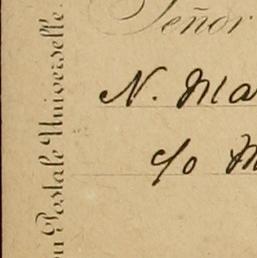 Señor
N. Ma
c/o M
on Postale Universelle.